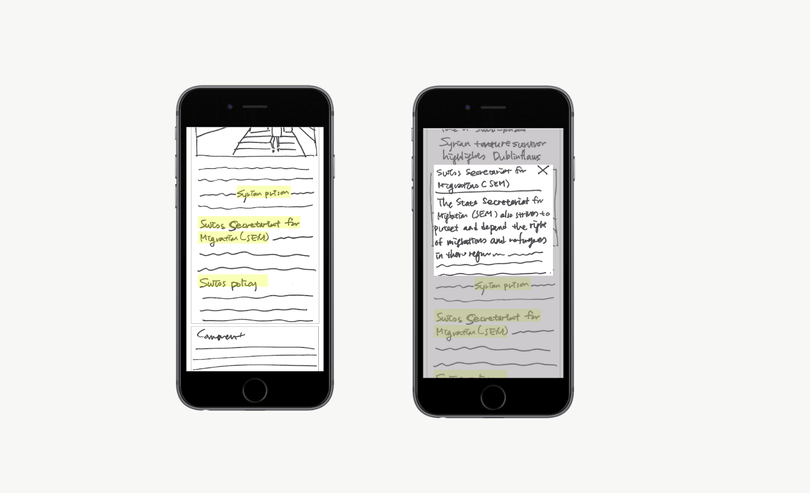 Syrian prison
Swiss Secretariat for
Migration (SEM)
Swiss policy
Comment
Syrian torture survivor
highlights Dublin flaws
Swiss Secretariat for
Migration (SEM)
The State Secretariat for
Migration (SEM) also strives to
protect and depend the right
of migrations and refugees
in there
Syrian prison
Swiss Secretariat for
Migration (SEM)